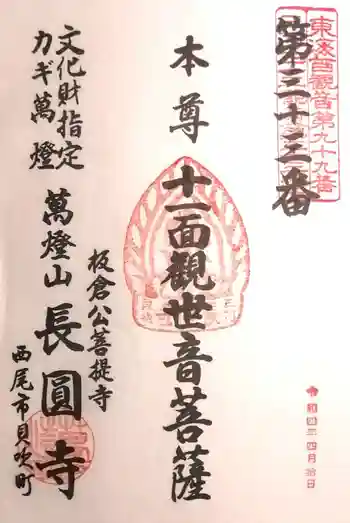 第三十三番
東海西観音第九十九番
本尊
十一面觀世音菩薩
文化財指定
カギ萬燈
板倉公菩提寺
萬燈山長圓寺
西尾市貝吹町